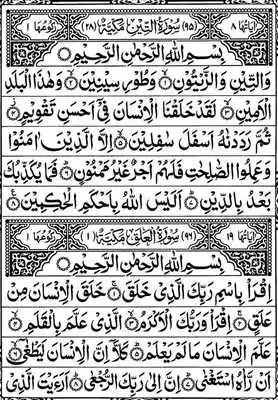 اٰیَاتُهَا ٨ (٩٥) سُوْرَةُ التِّيْنِ مَكِّيَّةٌ (٢٨) رُكُوْعُهَا ١
بِسْمِ اللهِ الرَّحْمٰنِ الرَّحِيْمِ
وَالتِّيْنِ وَالزَّيْتُوْنِ ۙ﴿١﴾ وَطُوْرِ سِيْنِيْنَ ۙ﴿٢﴾ وَهٰذَا الْبَلَدِ
الْاَمِيْنِ ۙ﴿٣﴾ لَقَدْ خَلَقْنَا الْاِنْسَانَ فِيْۤ اَحْسَنِ تَقْوِيْمٍ ۫﴿٤﴾
ثُمَّ رَدَدْنٰهُ اَسْفَلَ سٰفِلِيْنَ ۙ﴿٥﴾ اِلَّا الَّذِيْنَ اٰمَنُوْا
وَعَمِلُوا الصّٰلِحٰتِ فَلَهُمْ اَجْرٌ غَيْرُ مَمْنُوْنٍ ؕ﴿٦﴾ فَمَا يُكَذِّبُكَ
بَعْدُ بِالدِّيْنِ ؕ﴿٧﴾ اَلَيْسَ اللهُ بِاَحْكَمِ الْحٰكِمِيْنَ ﴿٨﴾
اٰیَاتُهَا ١٩ (٩٦) سُوْرَةُ الْعَلَقِ مَكِّيَّةٌ (١) رُكُوْعُهَا ١
بِسْمِ اللهِ الرَّحْمٰنِ الرَّحِيْمِ
اِقْرَاْ بِاسْمِ رَبِّكَ الَّذِيْ خَلَقَ ۚ﴿١﴾ خَلَقَ الْاِنْسَانَ مِنْ
عَلَقٍ ۚ﴿٢﴾ اِقْرَاْ وَرَبُّكَ الْاَكْرَمُ ۙ﴿٣﴾ الَّذِيْ عَلَّمَ بِالْقَلَمِ ۙ﴿٤﴾
عَلَّمَ الْاِنْسَانَ مَا لَمْ يَعْلَمْ ؕ﴿٥﴾ كَلَّاۤ اِنَّ الْاِنْسَانَ لَيَطْغٰۤى ۙ﴿٦﴾
اَنْ رَّاٰهُ اسْتَغْنٰى ؕ﴿٧﴾ اِنَّ اِلٰى رَبِّكَ الرُّجْعٰى ؕ﴿٨﴾ اَرَءَيْتَ الَّذِيْ